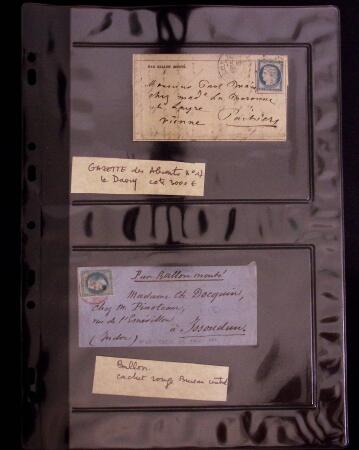 PAR BALLON MONTÉ.
Monsieur Paul
chez mad. la Baronne
St. Layre
Vienne Poitiers
GAZETTE des Absents N°
le Davy cote 3000 €
Par Ballon monté
Madame Ch. Docquin,
chez M. Pinoteau,
rue de l'
à Issoudun
(Indre)
Ballon
cachet rouge Bureau central